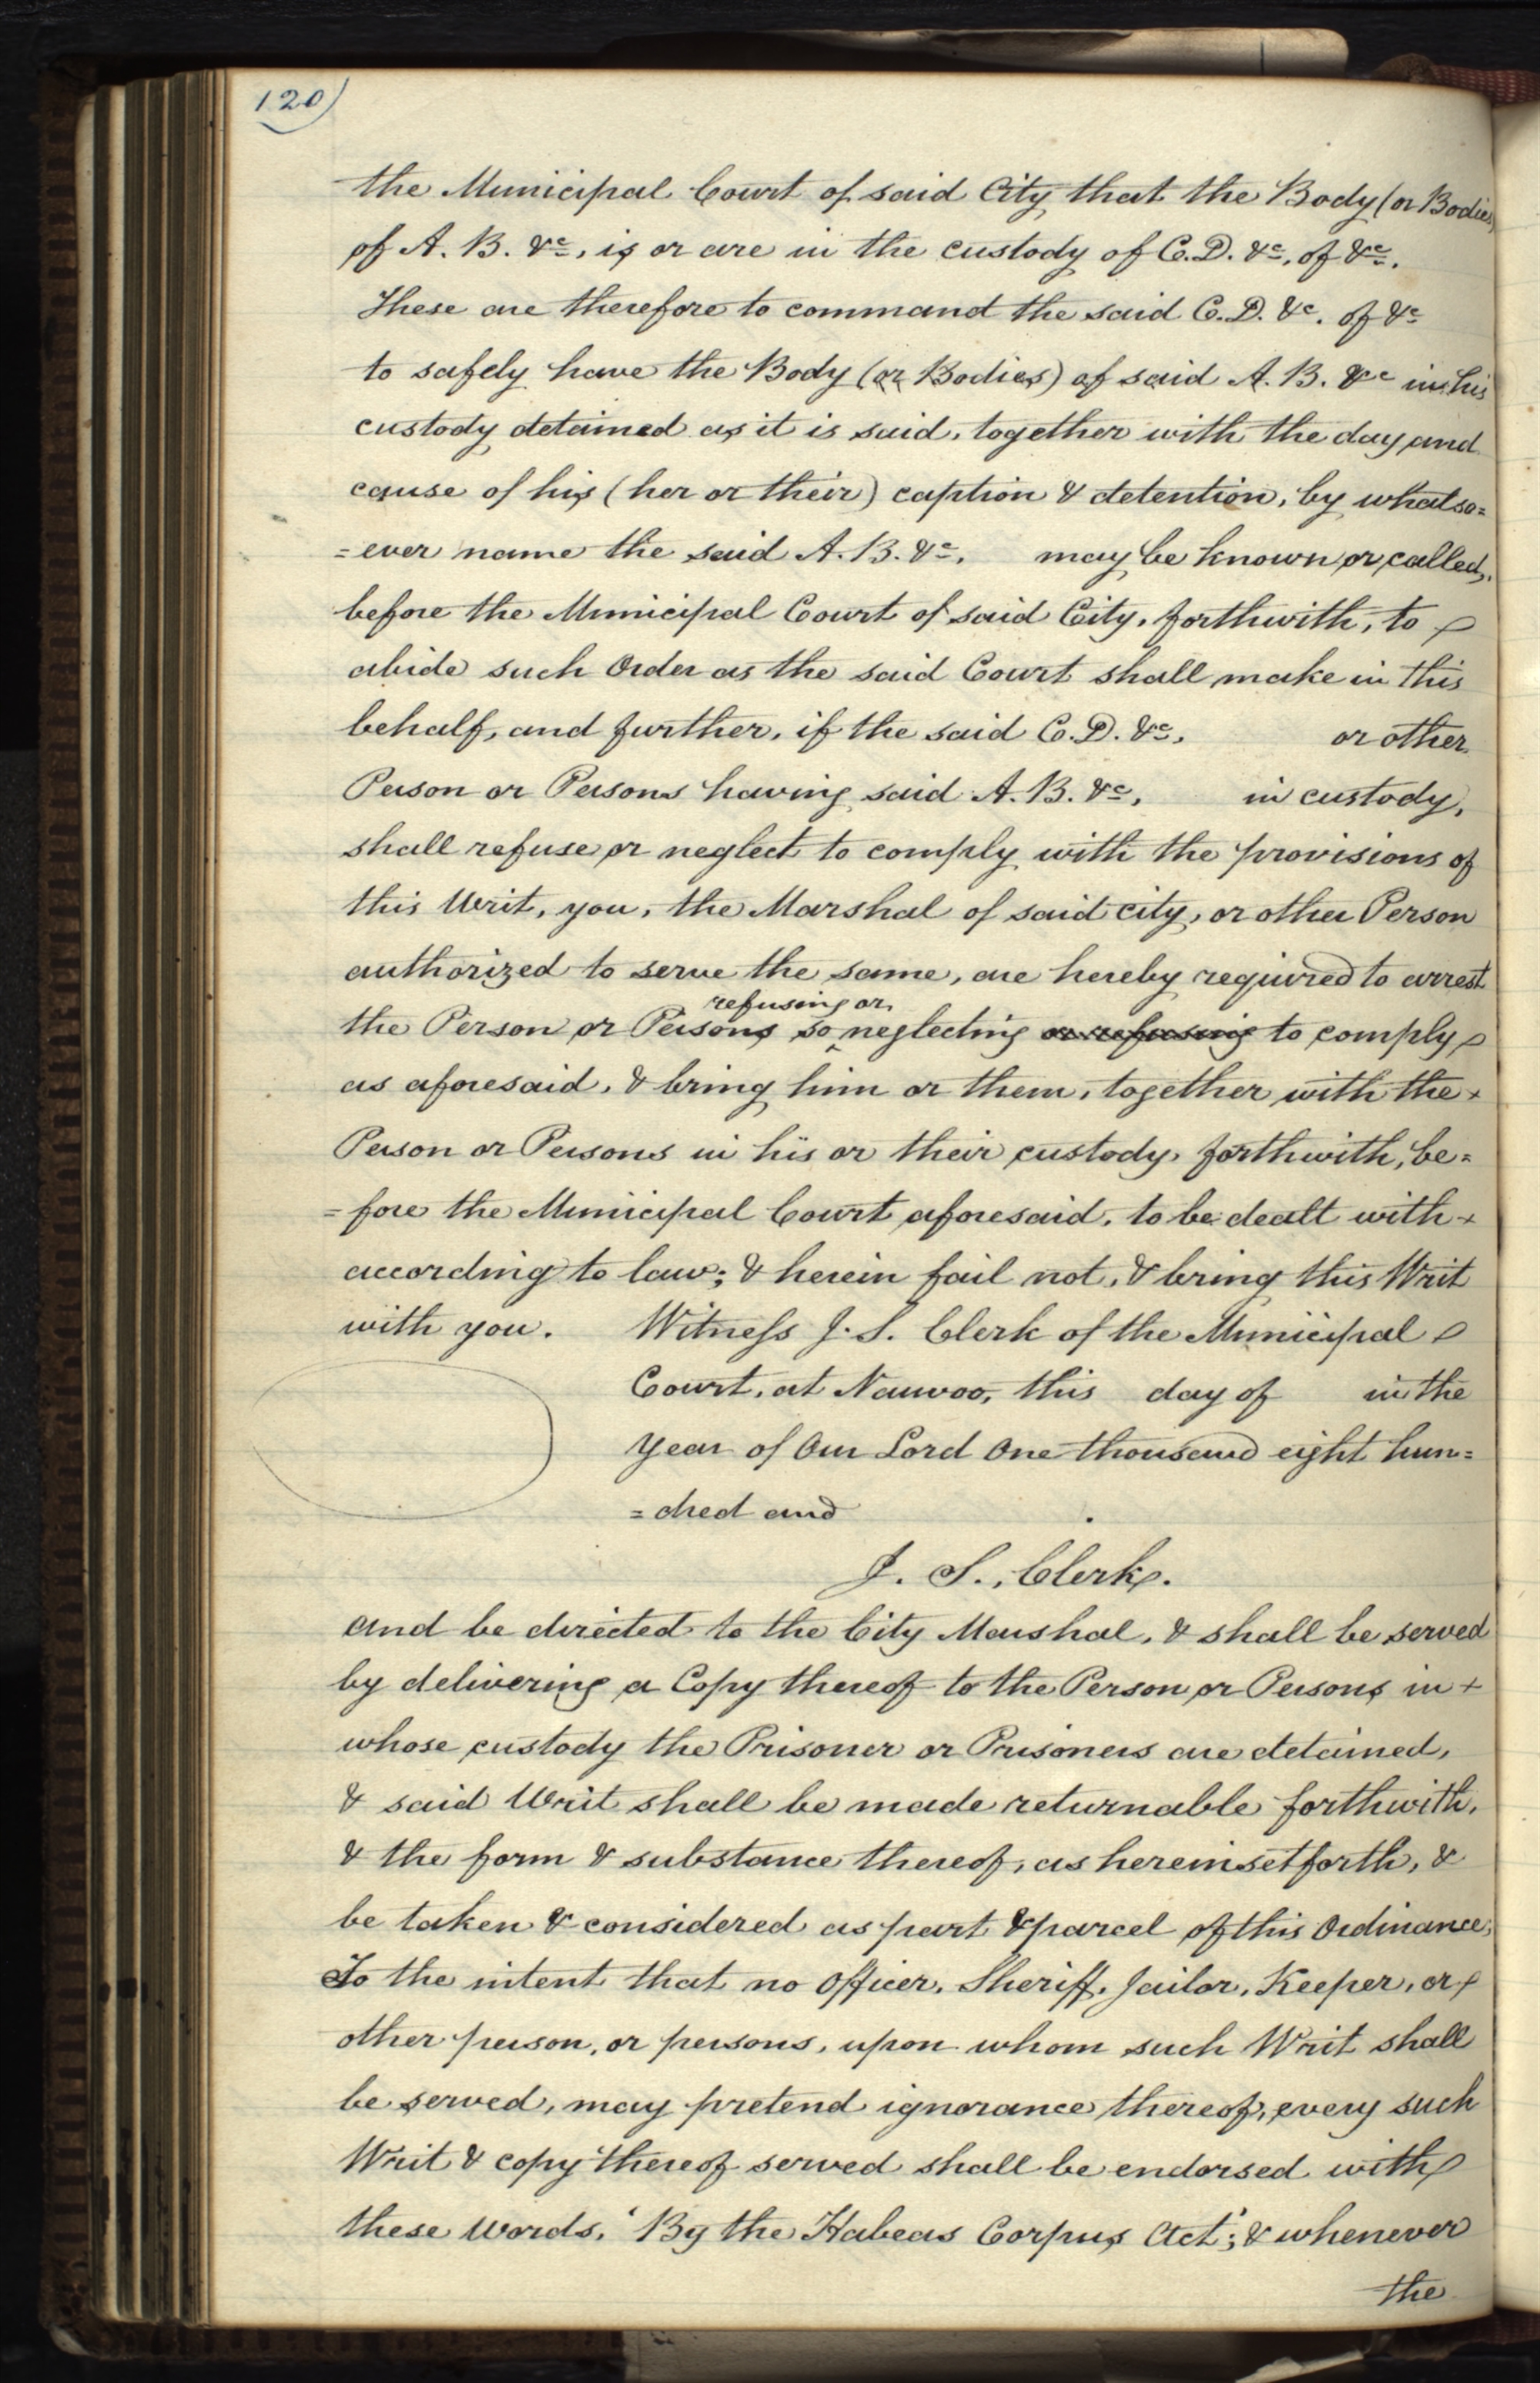 120)
the Municipal Court of said City that the Body (or Bodies)
of A. B. &c, is or are in the custody of C. D. &c, of &c.
These are therefore to command the said C. D. &c. of &c
to safely have the Body (or Bodies) of said A. B. &c in his
custody detained as it is said, together with the day and
cause of his (her or their) caption & detention, by whatso=
=ever name the said A. B. &c, may be known or called,
before the Municipal Court of said City, forthwith, to
abide such Order as the said Court shall make in this
behalf, and further, if the said C. D. &c, or other
Person or Persons having said A. B. &c, in custody,
shall refuse or neglect to comply with the provisions of
this Writ, you, the Marshal of said city, or other Person
authorized to serve the same, are hereby required to arrest
refusing or
the Person or Persons so neglecting or refusing to comply
as aforesaid, & bring him or them, together with the
Person or Persons in his or their custody, forthwith, be=
=fore the Municipal Court aforesaid, to be dealt with
according to law; & herein fail not, & bring this Writ
with you. Witness J. S. Clerk of the Municipal
Court, at Nauvoo, this day of in the
Year of Our Lord One thousand eight hun=
=dred and .
J. S., Clerk.
and be directed to the City Marshal, & shall be served
by delivering a Copy thereof to the Person or Persons in
whose custody the Prisoner or Prisoners are detained,
& said Writ shall be made returnable forthwith,
& the form & substance thereof, as herein set forth, &
be taken & considered as part & parcel of this Ordinance,
To the intent that no Officer, Sheriff, Jailor, Keeper, or
other person, or persons, upon whom such Writ shall
be served, may pretend ignorance thereof, every such
Writ & copy thereof served shall be endorsed with
these words, 'By the Habeas Corpus Act'; & whenever
the